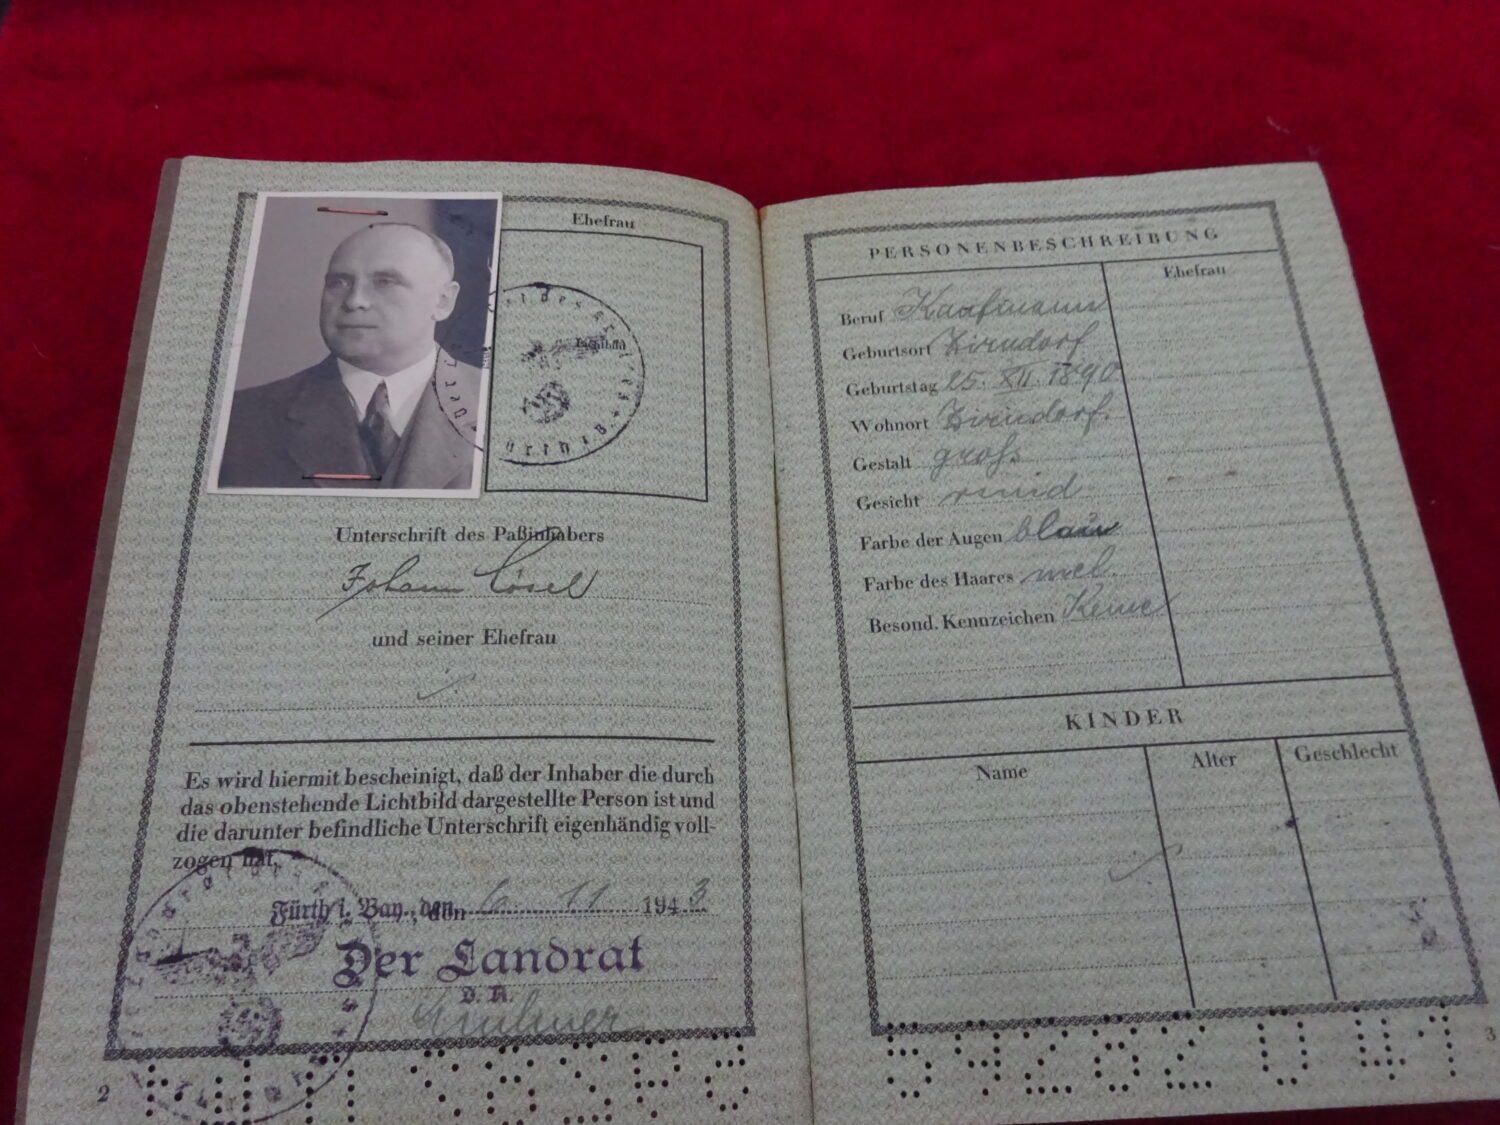 Ehefrau
Lichtbild
Unterschrift des Paßinhabers
Johann Lösel
und seiner Ehefrau
Es wird hiermit bescheinigt, daß der Inhaber die durch
das obenstehende Lichtbild dargestellte Person ist und
die darunter befindliche Unterschrift eigenhändig voll-
zogen hat.
Fürth i. Bay., den 6. 11 1943
Der Landrat
2
PERSONENBESCHREIBUNG
Ehefrau
Beruf Kaufmann
Geburtsort Zirndorf
Geburtstag 25. XII. 1890
Wohnort Zirndorf.
Gestalt groß
Gesicht rund
Farbe der Augen blau
Farbe des Haares mel.
Besond. Kennzeichen Keine
KINDER
Name Alter Geschlecht
3